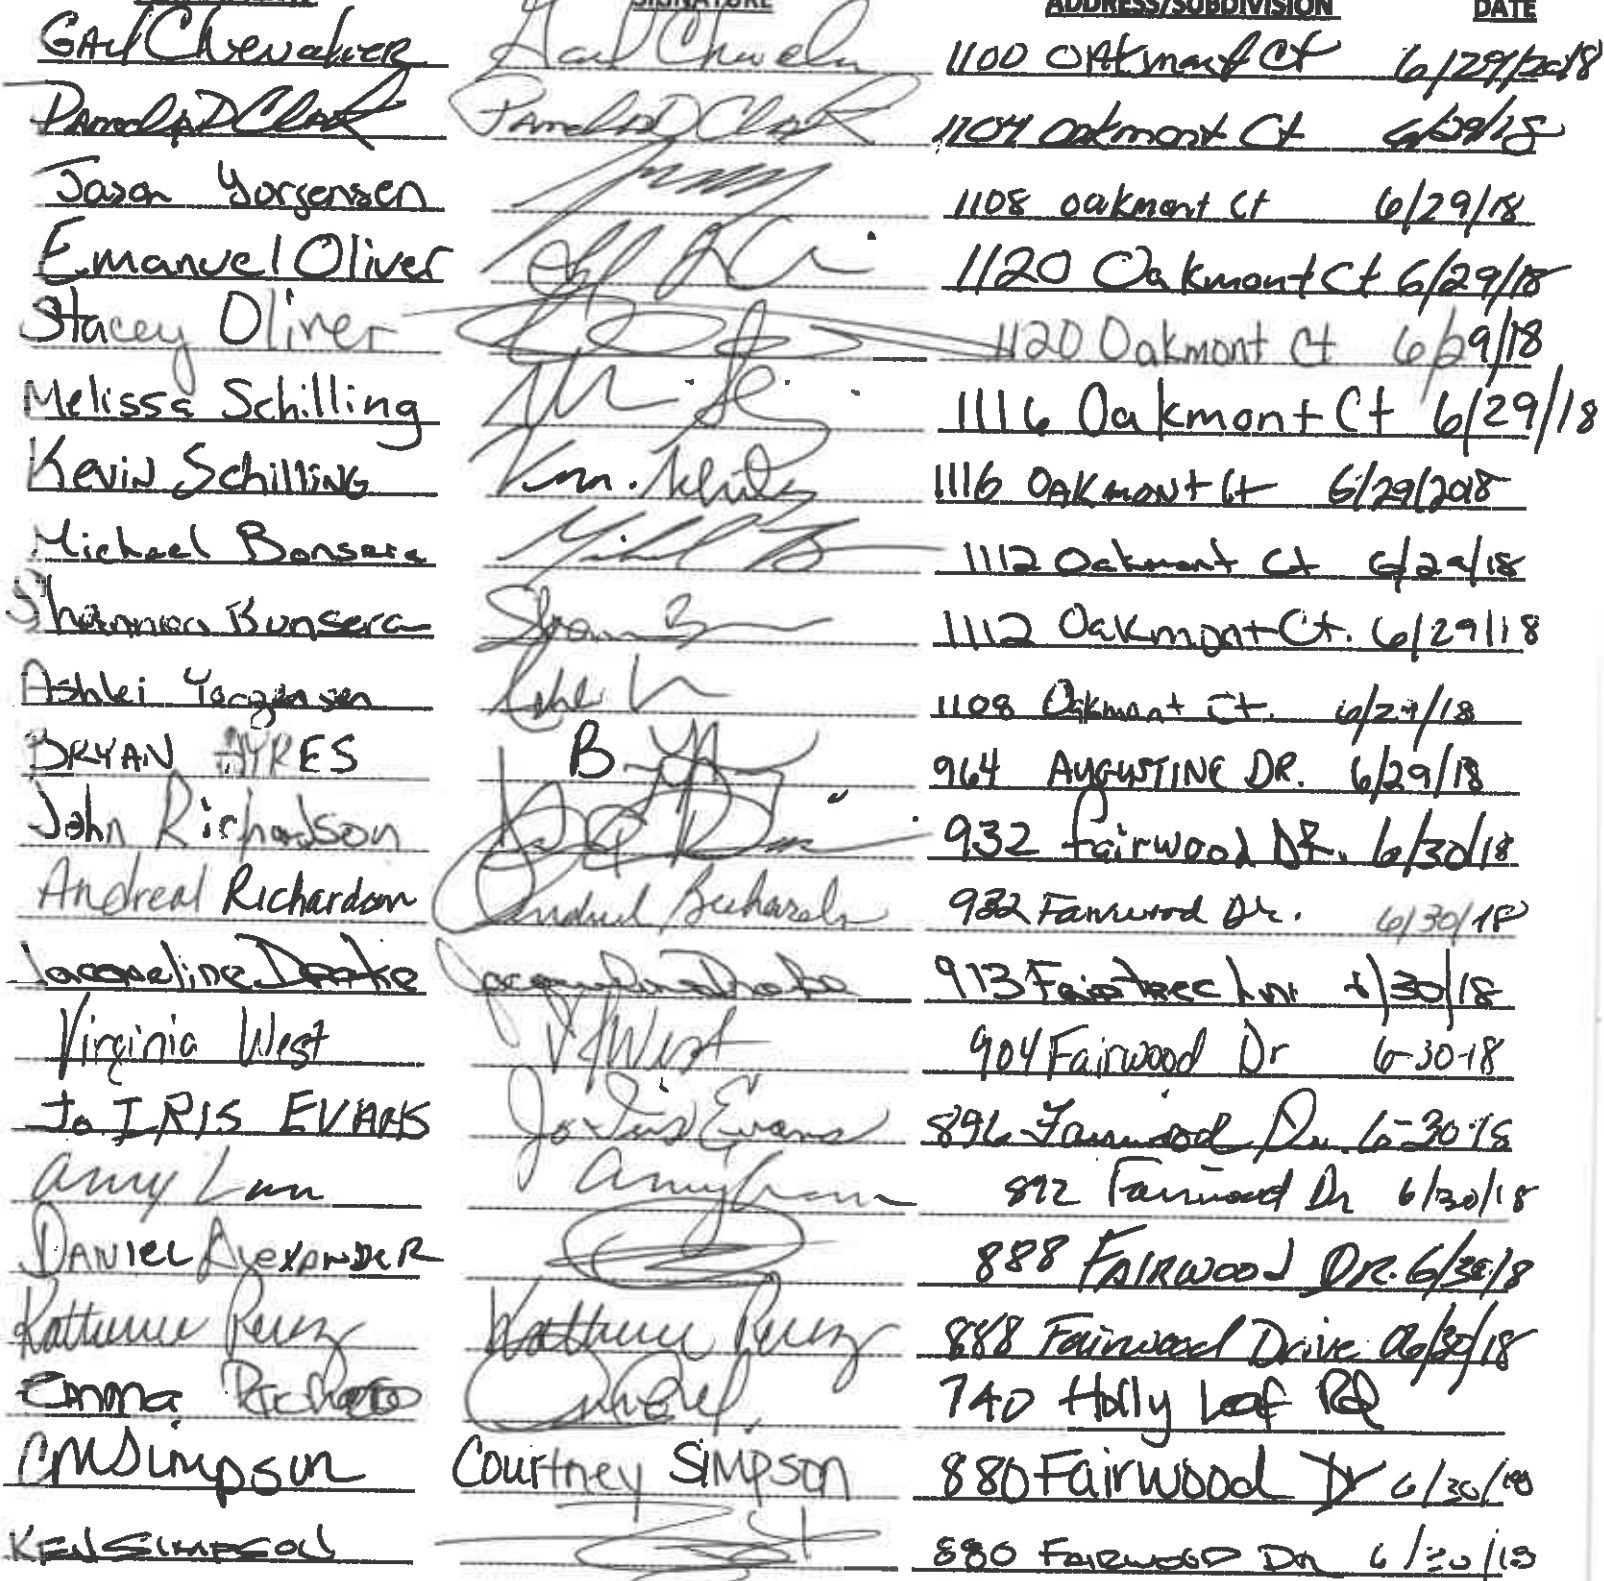 SIGNATURE ADDRESS/SUBDIVISION DATE
Gail Chevalier Gail 1100 Oakmont Ct 6/29/2018
Pamela D Clark Pamela D Clark 1104 Oakmont Ct 6/29/18
Jason Yorgensen 1108 Oakmont Ct 6/29/18
Emanuel Oliver 1120 Oakmont Ct 6/29/18
Stacey Oliver 1120 Oakmont Ct 6/29/18
Melissa Schilling 1116 Oakmont Ct 6/29/18
Kevin Schilling 1116 Oakmont Ct 6/29/2018
Michael Bonsera 1112 Oakmont Ct 6/29/18
Shannon Bonsera 1112 Oakmont Ct. 6/29/18
Ashlei Yorgensen 1108 Oakmont Ct. 6/29/18
BRYAN AYRES B 964 AUGUSTINE DR. 6/29/18
John Richardson 932 Fairwood DR. 6/30/18
Andreal Richardson Andreal Richardson 932 Fairwood Dr. 6/30/18
Jacqueline Drake Jacqueline Drake 913 Fairtree Ln 6/30/18
Virginia West V West 904 Fairwood Dr 6-30-18
Jo IRIS EVANS Jo Iris Evans 896 Fairwood Dr. 6-30-18
Amy Amy 892 Fairwood Dr 6/30/18
DANIEL ALEXANDER 888 FAIRWOOD DR. 6/30/18
Katherine Perez Katherine Perez 888 Fairwood Drive 06/30/18
Emma 740 Holly Leaf Rd
CMSimpson Courtney Simpson 880 Fairwood Dr 6/30/18
KEN SIMPSON 880 FAIRWOOD DR 6/30/18